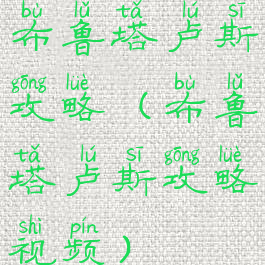 bù lǔ tǎ lú sī
布鲁塔卢斯
gōng lüè bù lǔ
攻略(布鲁
tǎ lú sī gōng lüè
塔卢斯攻略
shì pín
视频)